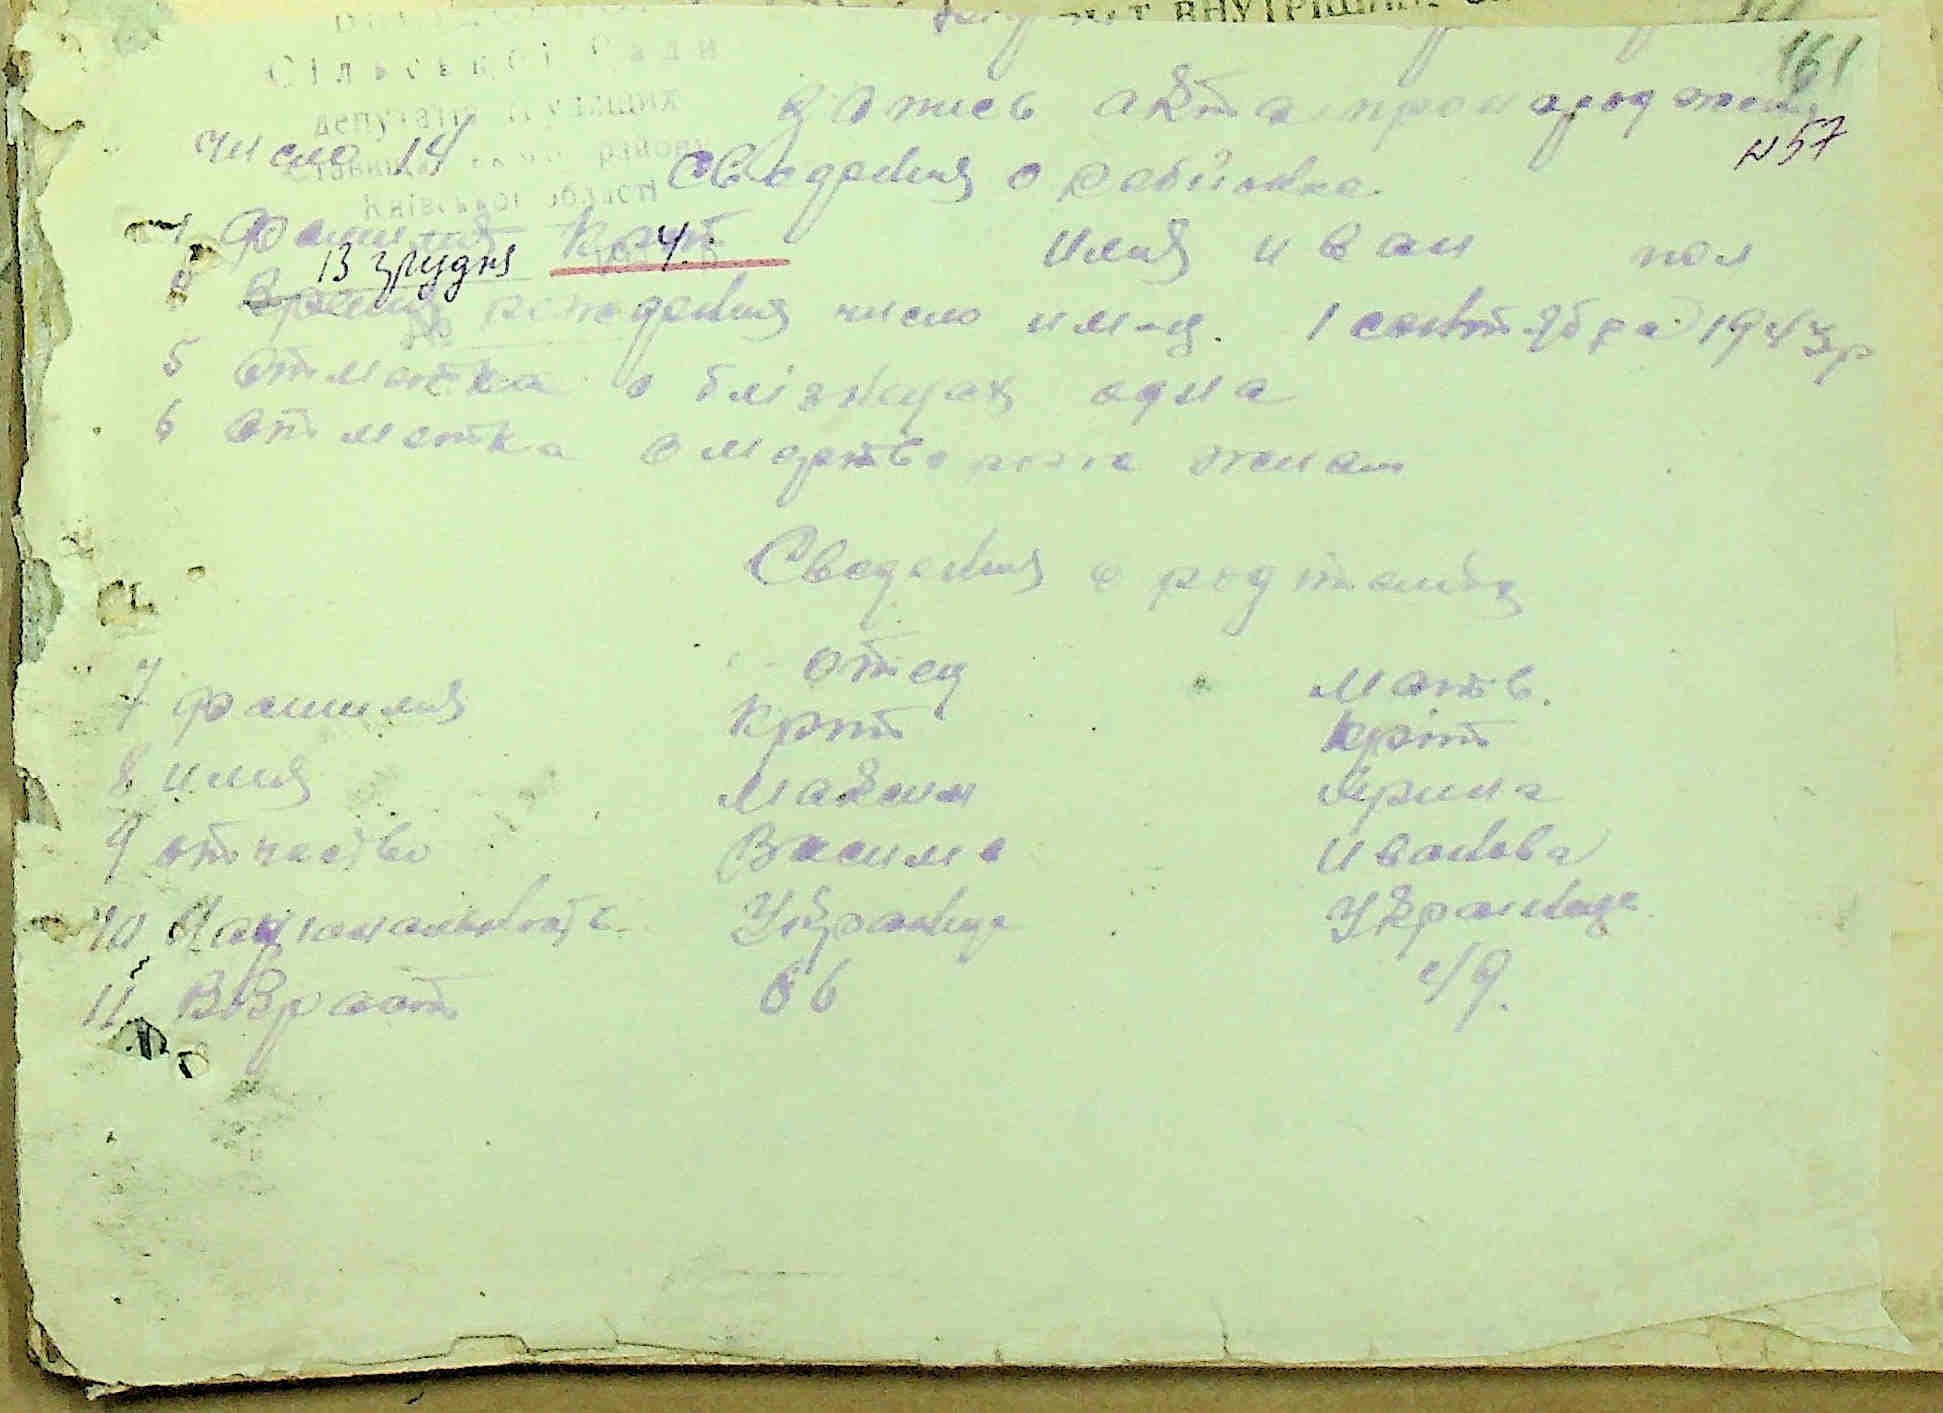 ВНУТРІШНІХ
161
Сільської Ради
депутатів трудящих
району
Київської області
Запись акта про народжения
N 57
число 14
Сведения о ребйонке.
1 Фамилия Крот
имия иван пол
13 грудня 4.
4 Время рождения число и м-ц. 1 сентября 1943р
5 отметка о блізнецах одна
6 отметка о мертворожденам
Сведения о родтелях
отец мать.
7 фамилия Крот Кріт
8 имия Максим Ярина
9 отчество Василе Иванова
10 Национальность Украинце Украинце
11 Возраст 66 49.